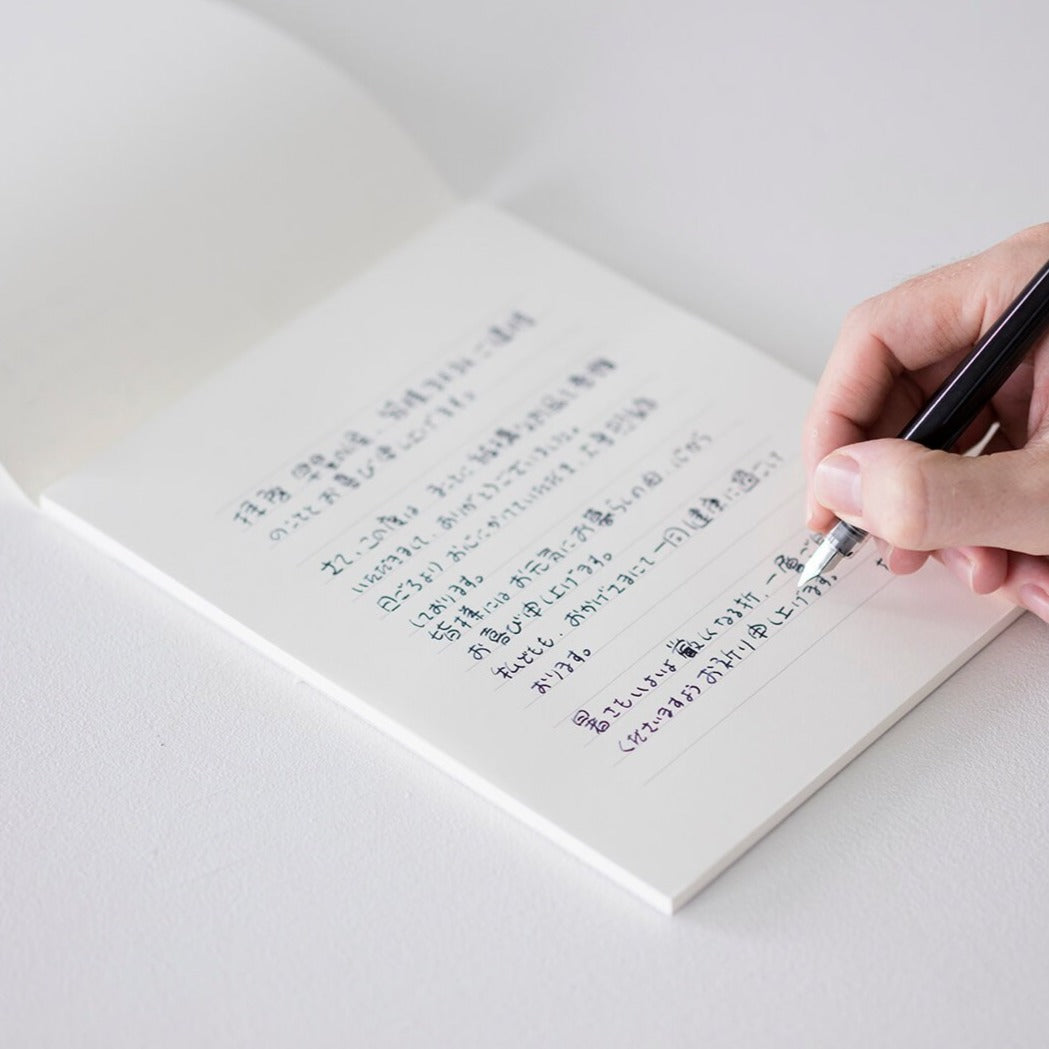 拝啓
のこととお喜び申し上げます。
さて、この度は まことに 結構なお品を
いただきまして、ありがとうございました。
日ごろより お心にかけていただき、
しております。
皆様には お元気にお暮らしの由、心から
お喜び申し上げます。
私どもも、おかげさまにて一同健康に過ごして
おります。
暑さもいよいよ厳しくなる折、一層
くださいますよう お祈り申し上げます。